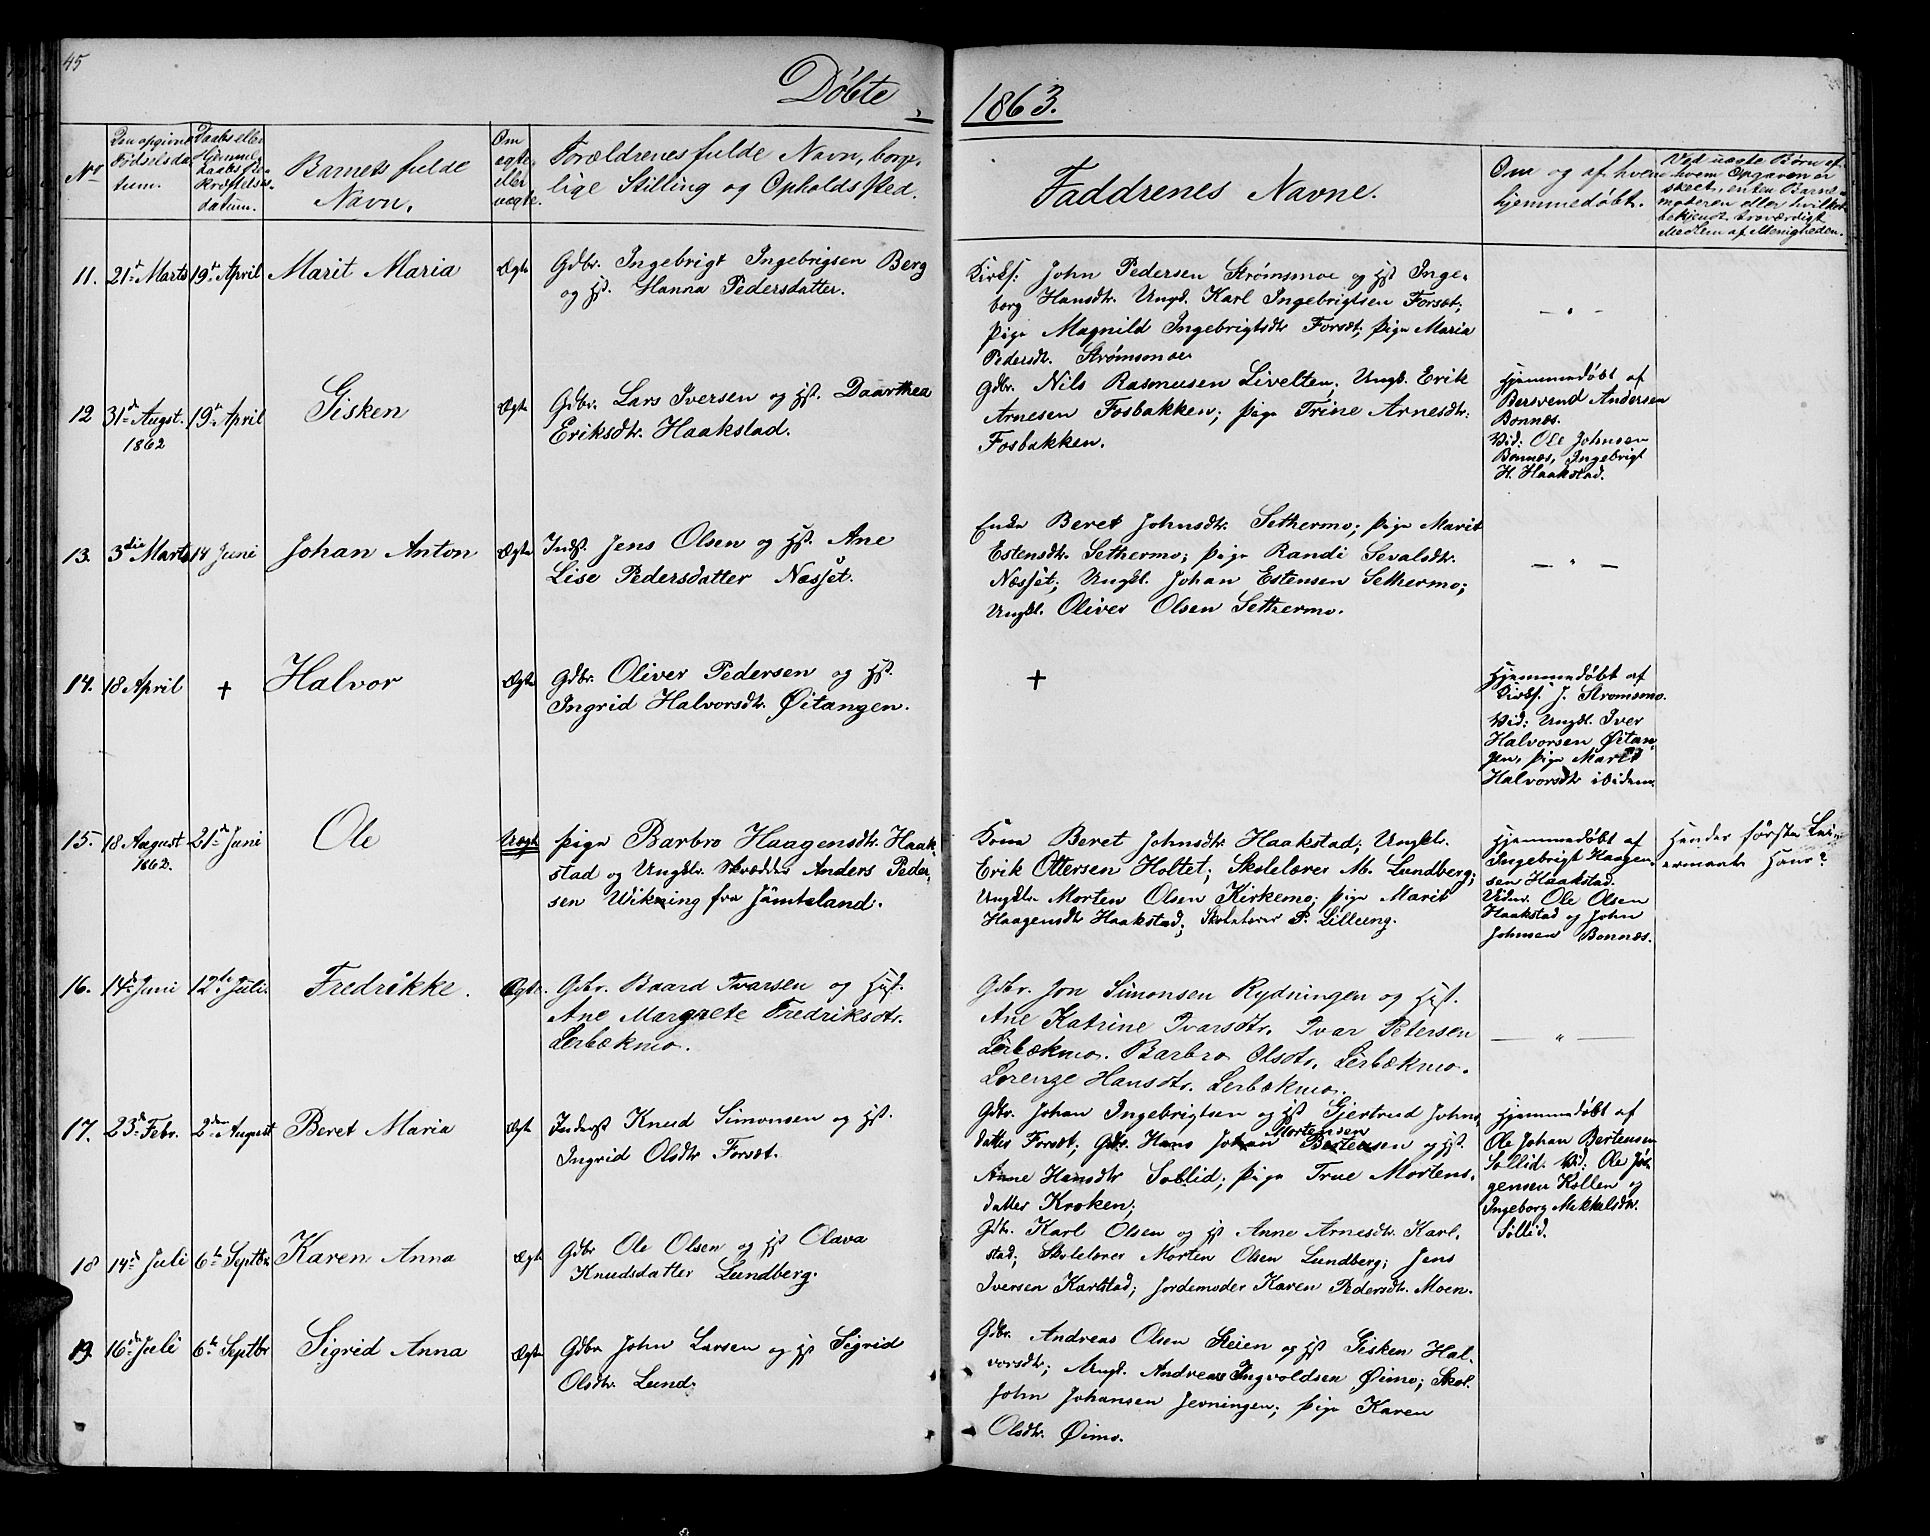 45
Døbte 1863.
No
Den opgivne Fødselsdatum.
Daabs eller Hjemmedaabs Bekræftelsesdatum.
Barnets fulde Navn.
Om ægte eller uægte.
Forældrenes fulde Navn, borgelige Stilling og Opholdssted.
Faddrenes Navne.
Om og af hvem hjemmedøbt.
Ved uægte Børn af hvem Opgaven er skeet, enten Barnemoderen eller hvilket bekjendt troværdigt Medlem af Menigheden.
11. 21de Marts 19de April Marit Maria Ægte
Gdbr. Ingebrigt Ingebrigsen Berg
og Hst. Hanna Pedersdatter.
Kirks: John Pedersen Strømsmoe og Hst Inge-
borg Hansdtr. Ungk. Karl Ingebrigtsen Forsæt;
Pige Magnild Ingebrigtsdtr Forsæt; Pige Maria
Pedersdt. Strømsmoe
— " —
12 31de Augst. 1862 19de April Gisken Ægte
Gdbr. Lars Iversen og Hst. Daarthea
Eriksdtr. Haakstad.
Gdbr. Nils Rasmusen Livelten; Ungk. Erik
Arnesen Fosbakken; Pige Trine Arnesdtr.
Fosbakken.
Hjemmedøbt af
Bersvend Andersen
Bonnæs.
Vid: Ole Johnsen
Bonnæs, Ingebrigt
H. Haakstad.
13. 3die Marts 14 Juni Johan Anton Ægte
Indst. Jens Olsen og Hst. Ane
Lise Pedersdatter Næsset.
Enke Beret Johnsdtr. Sethermo; Pige Marit
Estensdtr. Sethermo; Pige Randi Sevalsdtr.
Næsset; Ungkl. Johan Estensen Sethermo;
Ungkl. Oliver Olsen Sethermo.
— " —
14. 18 April + Halvor Ægte
Gdbr. Oliver Pedersen og Hst.
Ingrid Halvorsdtr. Øitangen.
+
Hjemmedøbt af
Kirks. J. Stromsmo.
Vid: Ungkl. Iver
Halvorsen Øitan-
gen, Pige Marit
Halvorsdtr ibidem
15. 18 August 1862. 21de Juni Ole Uægte
Pige Barbro Haagensdtr. Haak-
stad og Ungklr. Skrædder Anders Peder-
sen Wikning fra Jämteland.
Kone Beret Johnsdtr Haakstad; Ungklr.
Erik Ottersen Holtet; Skolelærer M. Lundberg;
Ungklr Morten Olsen Kirkemo; Pige Marit
Haagensdtr Haakstad; Skolelærer P. Lilleeng.
Hjemmedøbt af
Ingebrigt Haagen-
sen Haakstad.
Vidn. Ole Olsen
Haakstad og John
Johnsen Bonnæs.
Hendes første Lei-
ermaal. Hans?
16. 14de Juni 12te Juli. Fredrikke. Ægte.
Gdbr. Baard Ivarsen og Hst.
Ane Margrete Fredriksdtr.
Lerbækmo.
Gdbr. Jon Simonsen Rydningen og Hst.
Ane Katrine Ivarsdtr. Ivar Petersen
Lerbækmo. Barbro Olsdtr. Lerbækmo.
Lorenze Hansdtr. Lerbækmo.
— " —
17. 23de Febr. 2den August Beret Maria Ægte
Inderst Knud Simonsen og Hst.
Ingrid Olsdtr Forsæt.
Gdbr. Johan Ingebrigtsen og Hst Gjertrud Johns-
datter Forsæt; Gdbr. Hans Johan Mortensen Bertensen og Hst.
Anne Hansdtr Sollid; Pige True Mortens-
datter Kroken;
Hjemmedøbt af
Ole Johan Bertensen
Sollid. Vid: Ole Jør-
gensen Kollen og
Ingeborg Mekkelsdtr.
Sollid.
18 14de Juli 6te Septbr Karen Anna Ægte
Gdbr Ole Olsen og Hst Olava
Knudsdatter Lundberg.
Gdbr. Karl Olsen og Hst Anne Arnesdtr. Karl-
stad; Skolelærer Morten Olsen Lundberg; Jens
Iversen Karlstad; Jordemoder Karen Pedersdtr. Moen.
19. 16de Juli 6te Septbr Sigrid Anna Ægte
Gdbr John Larsen og Hst Sigrid
Olsdtr. Lund.
Gdbr. Andreas Olsen Steien og Hst Gisken Hal-
vorsdtr; Ungk. Andreas Ingvoldsen Øimo; Skol.
John Johansen Jevningen; Pige Karen
Olsdtr. Øimo.